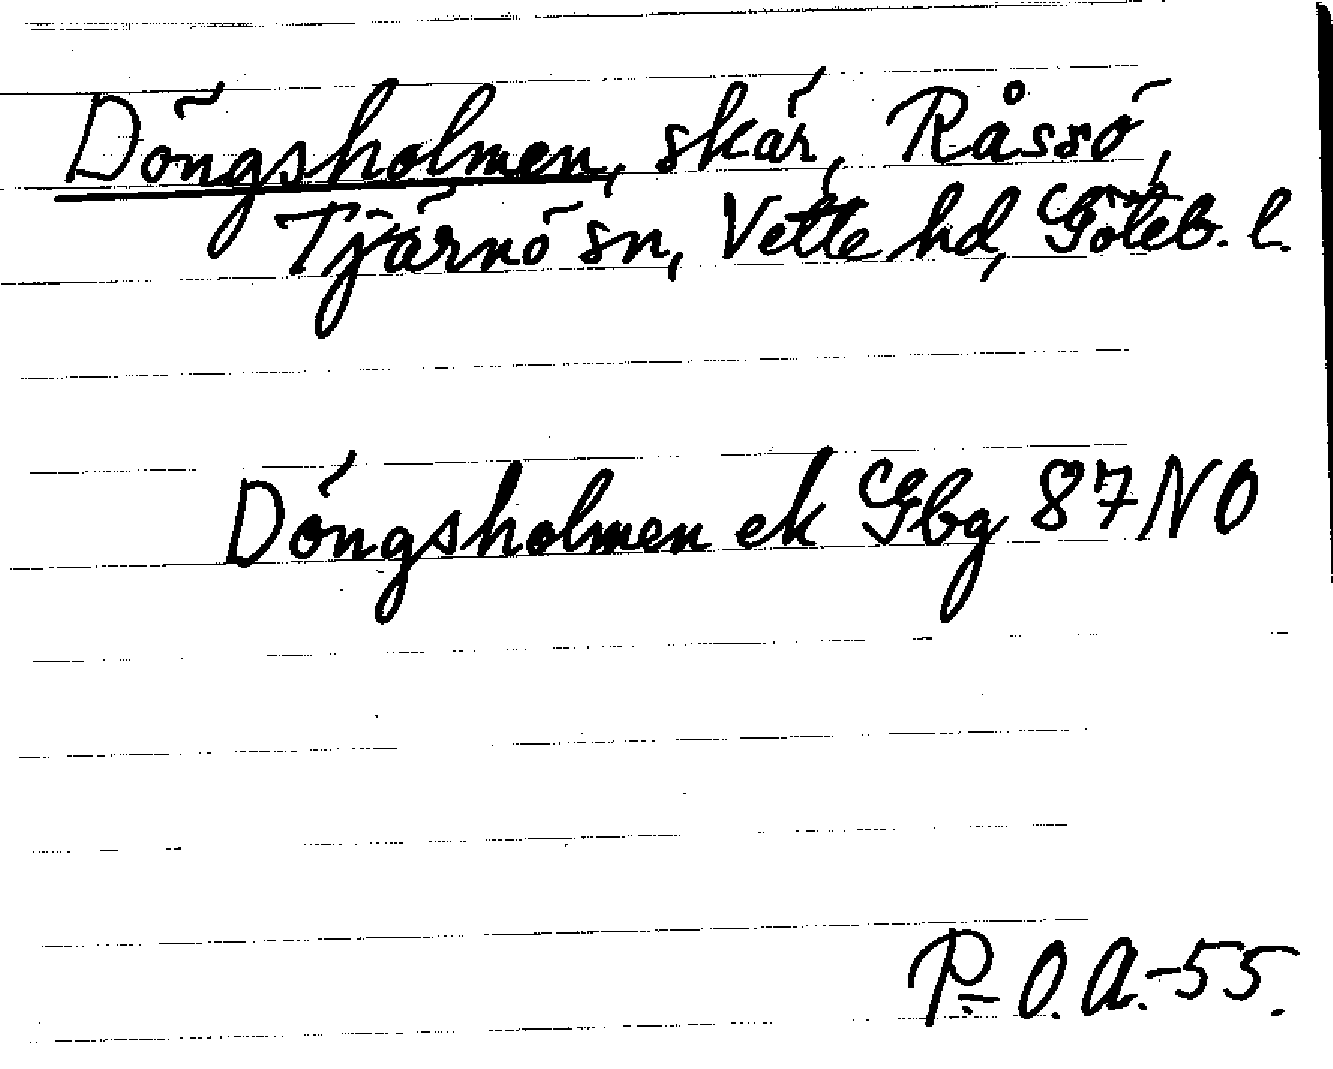 Döngsholmen, skär, Råssö,
Tjärnö sn, Vette hd, Göteb. l.
Döngsholmen ek Gbg 87 NO
P. O. A.-55.